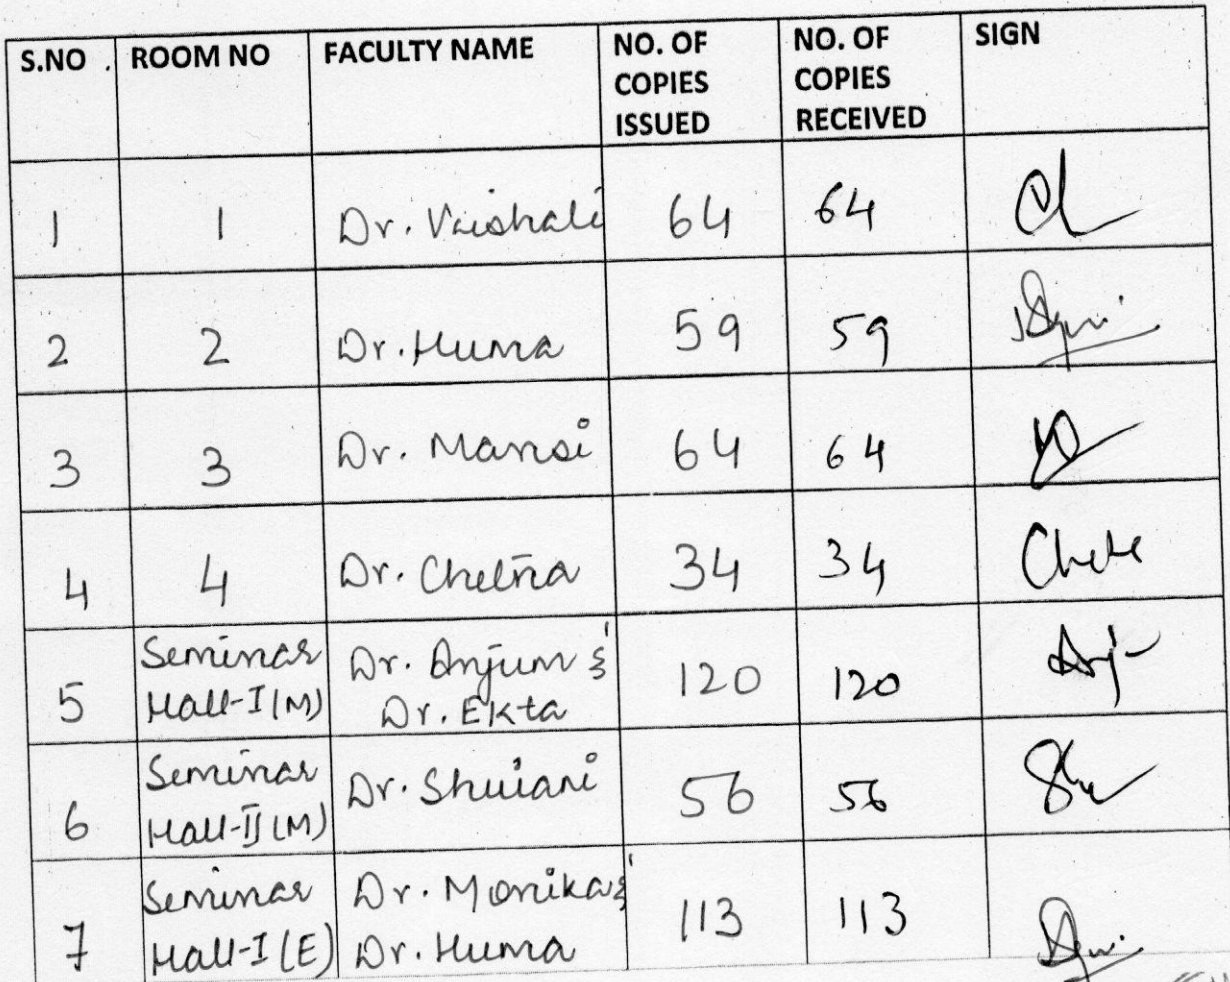 S.NO . ROOM NO FACULTY NAME NO. OF COPIES ISSUED NO. OF COPIES RECEIVED SIGN
1 1 Dr. Vaishali 64 64
2 2 Dr. Huma 59 59
3 3 Dr. Mansi 64 64
4 4 Dr. Chetna 34 34
5 Seminar Hall-I (M) Dr. Anjum & Dr. Ekta 120 120
6 Seminar Hall-II (M) Dr. Shivani 56 56
7 Seminar Hall-I (E) Dr. Monika & Dr. Huma 113 113